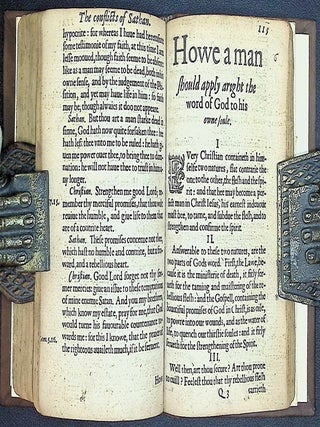 The conflicts of Sathan.
hypocrite: for whereas I haue had heretofore
some testimonie of my faith, at this time I am
lesse mooued, though faith seeme to be
like as a man may seeme to be dead, both
owne sense, and by the iudgement of the
sition, and yet may haue life in him: so faith
may be, though alwaies it doo not appeare.
Sathan. But thou art a man starke dead in
sinne, God hath now quite forsaken thee: he
hath left thee vnto me to be ruled: he hath
uen me power ouer thee, to bring thee to dam-
nation: he will not haue thee to trust in him a-
ny longer.
Christian. Strengthen me good Lord, re-
member thy mercifull promises, that thou wilt
reuiue the humble, and giue life to them that
are of a contrite heart.
Sathan. These promises concerne not thee,
which hast no humble and contrite, but a fro-
ward, and a rebellious heart.
Christian. Good Lord forget not thy for-
mer mercies: giue an issue to these temptations
of mine enemie Satan. And you my brethren,
which know my estate, pray for me, that God
would turne his fauourable countenance to-
wards me: for this I knowe, that the prayer of
the righteous auaileth much, if it be feruent.
How
115
Howe a man
should apply aright the
word of God to his
owne soule.
I
Euery Christian containeth in him-
selfe two natures, flat contrarie the
one to the other, the flesh and the spi-
rit: and that hee may become a per-
fect man in Christ Iesus, his earnest indeuour
must bee, to tame, and subdue the flesh, and to
strengthen and confirme the spirit.
II.
Answerable to these two natures, are the
two parts of Gods word. First, the Law, be-
cause it is the ministerie of death, it fitly ser-
ueth for the taming and mastering of the re-
bellious flesh: and the Gospell, containing the
bountifull promises of God in Christ, is as oile,
to powre into our wounds, and as the water of
life, to quench our thirstie soules: and it fitly
serueth for the strengthening of the Spirit.
III.
Well then, art thou secure? Art thou prone
to euill? Feelest thou that thy rebellious flesh
Q 3
carrieth